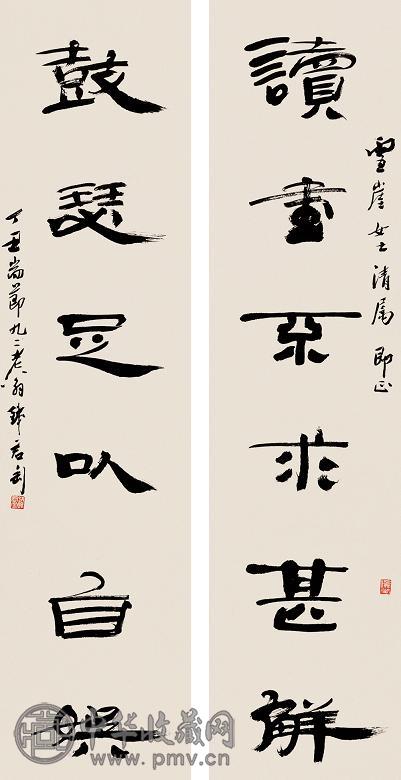 雪崖女士清屬 即正
讀書不求甚解
鼓瑟足以自娛
丁丑耑節九二老翁錢君匋
中华收藏网
www.pmv.cn